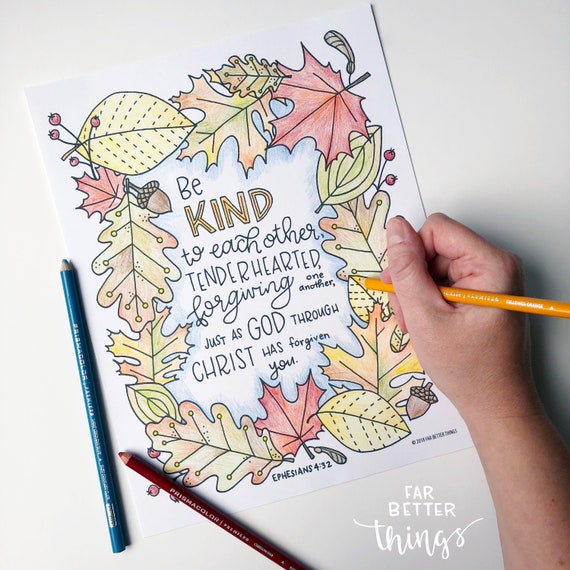 Be
KIND
to each other,
TENDERHEARTED,
forgiving one another,
JUST AS GOD THROUGH
CHRIST HAS forgiven
you.
EPHESIANS 4:32
© 2018 FAR BETTER THINGS
PRISMACOLOR
PRISMACOLOR PREMIER
PREMIER
FAR
BETTER
things